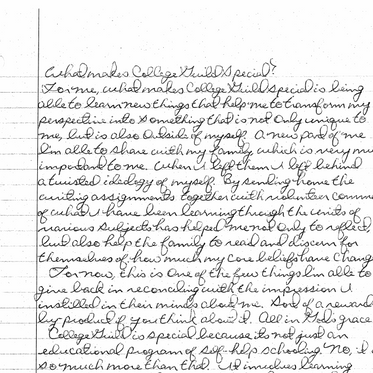 What makes College Guild Special?
For me, what makes College Guild special is being
able to learn new things that help me to transform my
perspective into something that is not only unique to
me, but is also outside of myself. A new part of me
I'm able to share with my family, which is very mu
important to me. When I left them I left behind
a twisted ideology of myself. By sending home the
writing assignments together with volunteer comme
of what I have been learning through the units of
various subjects has helped me not only to reflect,
but also help the family to read and discern for
themselves of how much my core beliefs have chang
For now, this is one of the few things I'm able to
give back in reconciling with the impression I
instilled in their minds about me. Sort of a reward
by product if you think about it. All in God's grace
College Guild is special because it's not just an
educational program of self-help schooling. No, i
so much more than that. It involves learning